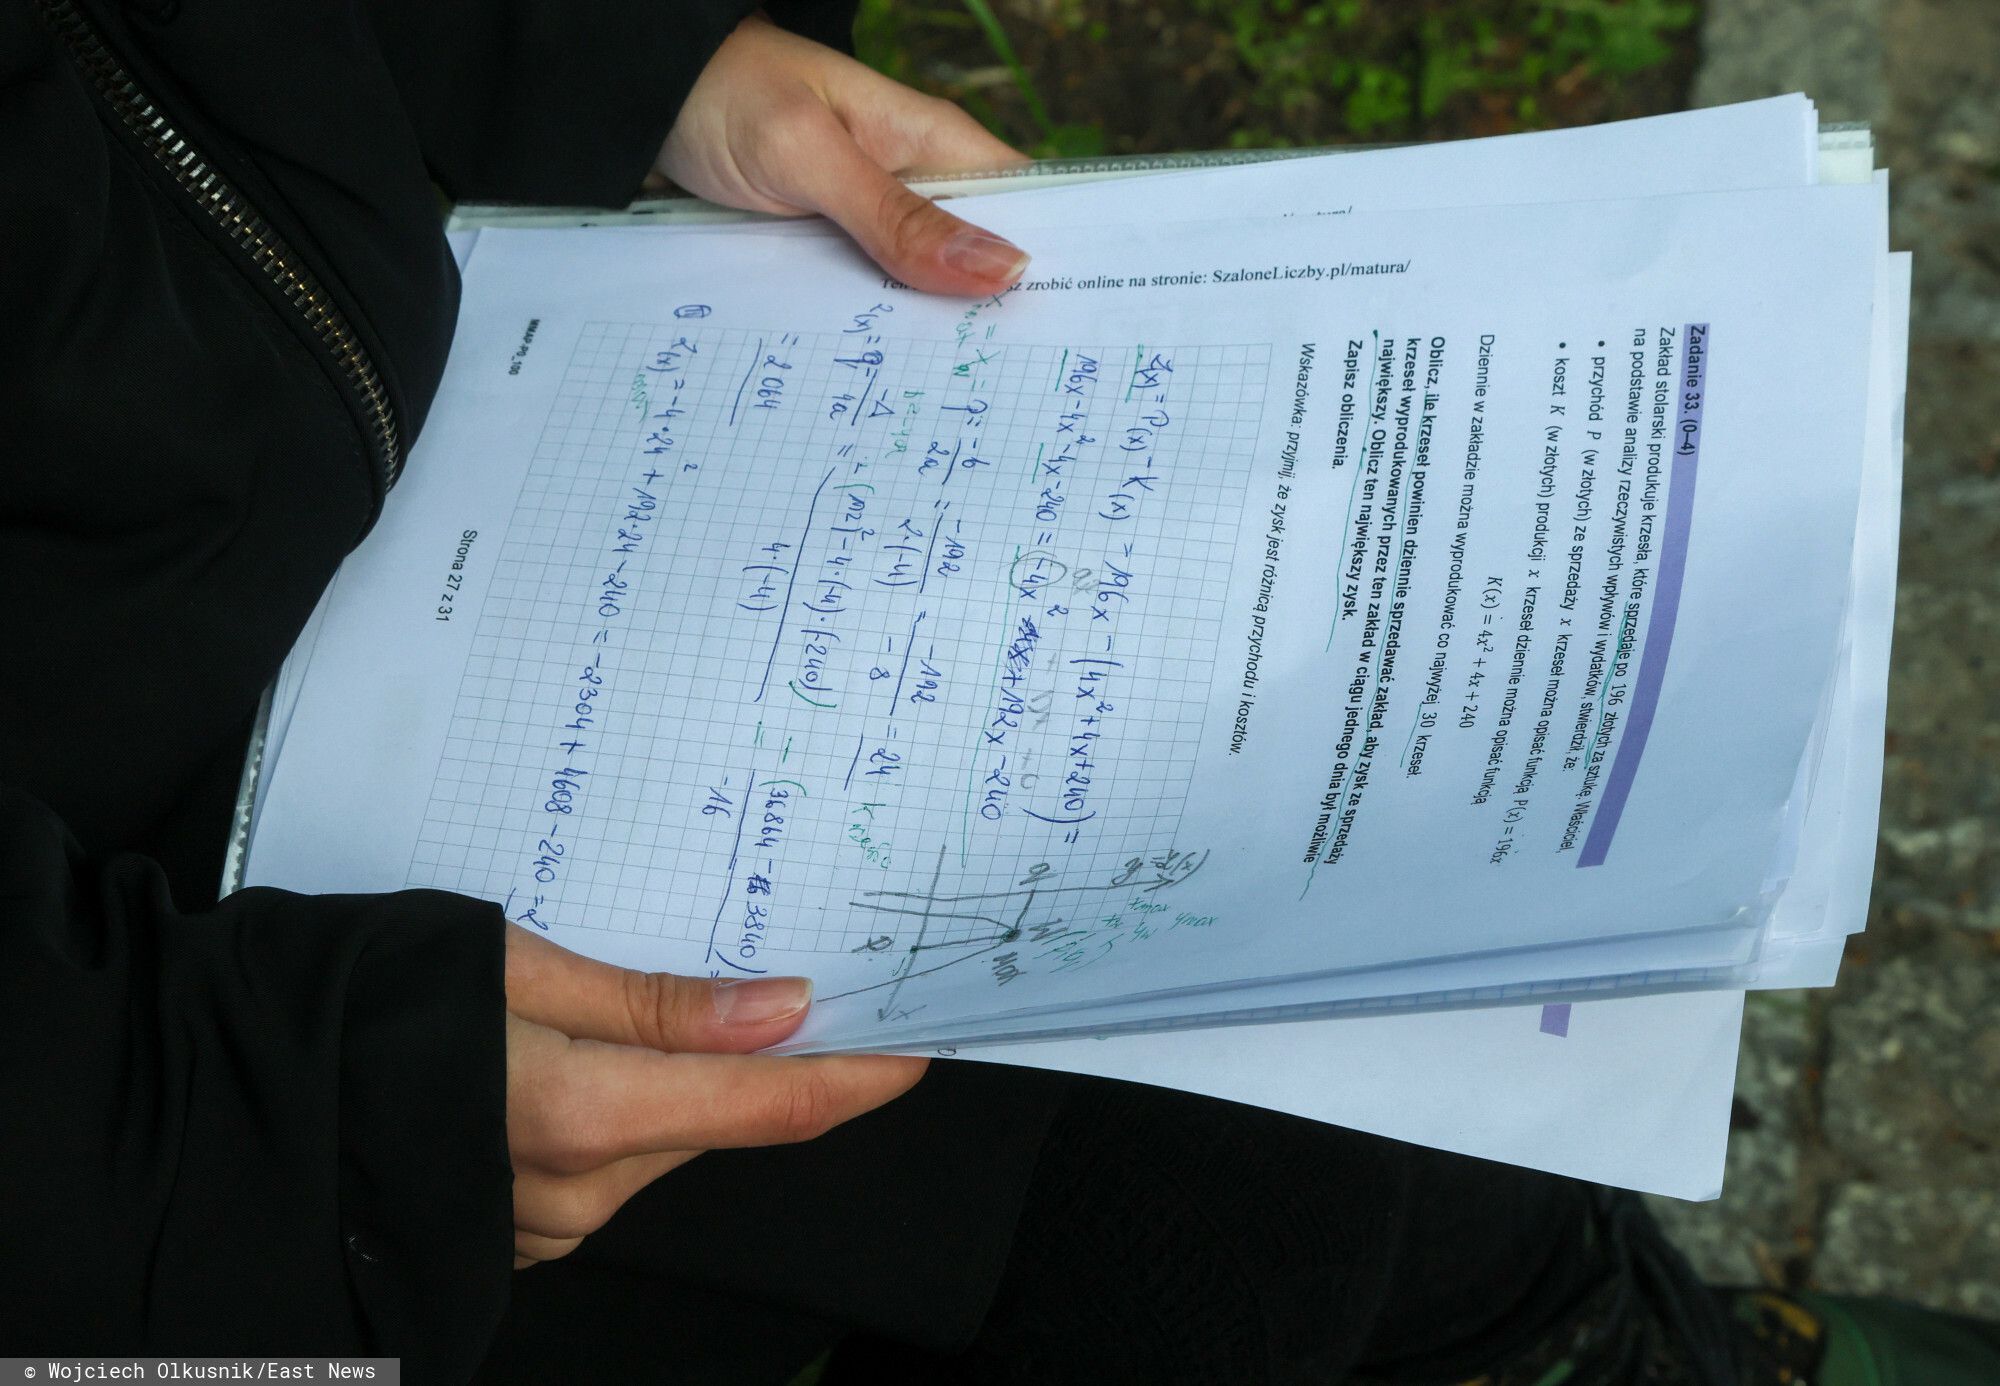 zrobić online na stronie: SzaloneLiczby.pl/matura/
Zadanie 33. (0–4)
Zakład stolarski produkuje krzesła, które sprzedaje po 196 złotych za sztukę. Właściciel,
na podstawie analizy rzeczywistych wpływów i wydatków, stwierdził, że:
• przychód P (w złotych) ze sprzedaży x krzeseł można opisać funkcją P(x) = 196x
• koszt K (w złotych) produkcji x krzeseł dziennie można opisać funkcją
K(x) = 4x² + 4x + 240
Dziennie w zakładzie można wyprodukować co najwyżej 30 krzeseł.
Oblicz, ile krzeseł powinien dziennie sprzedawać zakład, aby zysk ze sprzedaży
krzeseł wyprodukowanych przez ten zakład w ciągu jednego dnia był możliwie
największy. Oblicz ten największy zysk.
Zapisz obliczenia.
Wskazówka: przyjmij, że zysk jest różnicą przychodu i kosztów.
Z(x) = P(x) − K(x) = 196x − (4x² + 4x + 240) =
196x − 4x² − 4x − 240 = −4x² + 192x − 240
x = x = p = −b / 2a = −192 / 2·(−4) = −192 / −8 = 24
Z(x) = q = −Δ / 4a = −(192² − 4·(−4)·(−240)) / 4·(−4) = −(36864 − 3840) / −16 =
= 2064
Z(x) = −4·24² + 192·24 − 240 = −2304 + 4608 − 240 = 2
MMAP-P0_100
Strona 27 z 31
© Wojciech Olkusnik/East News